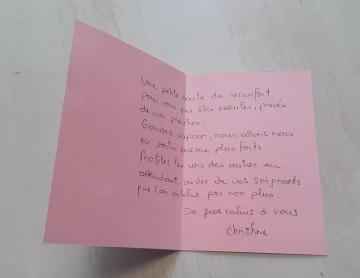 Une petite carte de réconfort
pour vous qui êtes esseulés, privés
de vos proches.
Gardez espoir, nous allons nous
en sortir encore plus forts.
Profitez les uns des autres en
attendant, aidés de vos soignants
que l'on oublie pas non plus.
De gros calins à vous
Christine